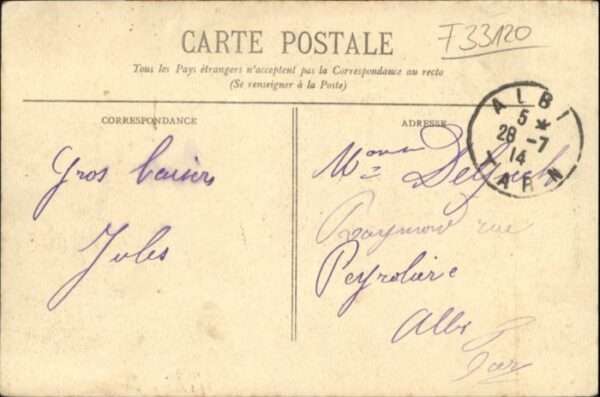 CARTE POSTALE
F33120
Tous les Pays étrangers n'acceptent pas la Correspondance au recto
(Se renseigner à la Poste)
CORRESPONDANCE
ADRESSE
ALBI
5 *
28 -7
14
TARN
Gros baisers
Jules
Raymond rue
Peyrolière
Albi
Tarn